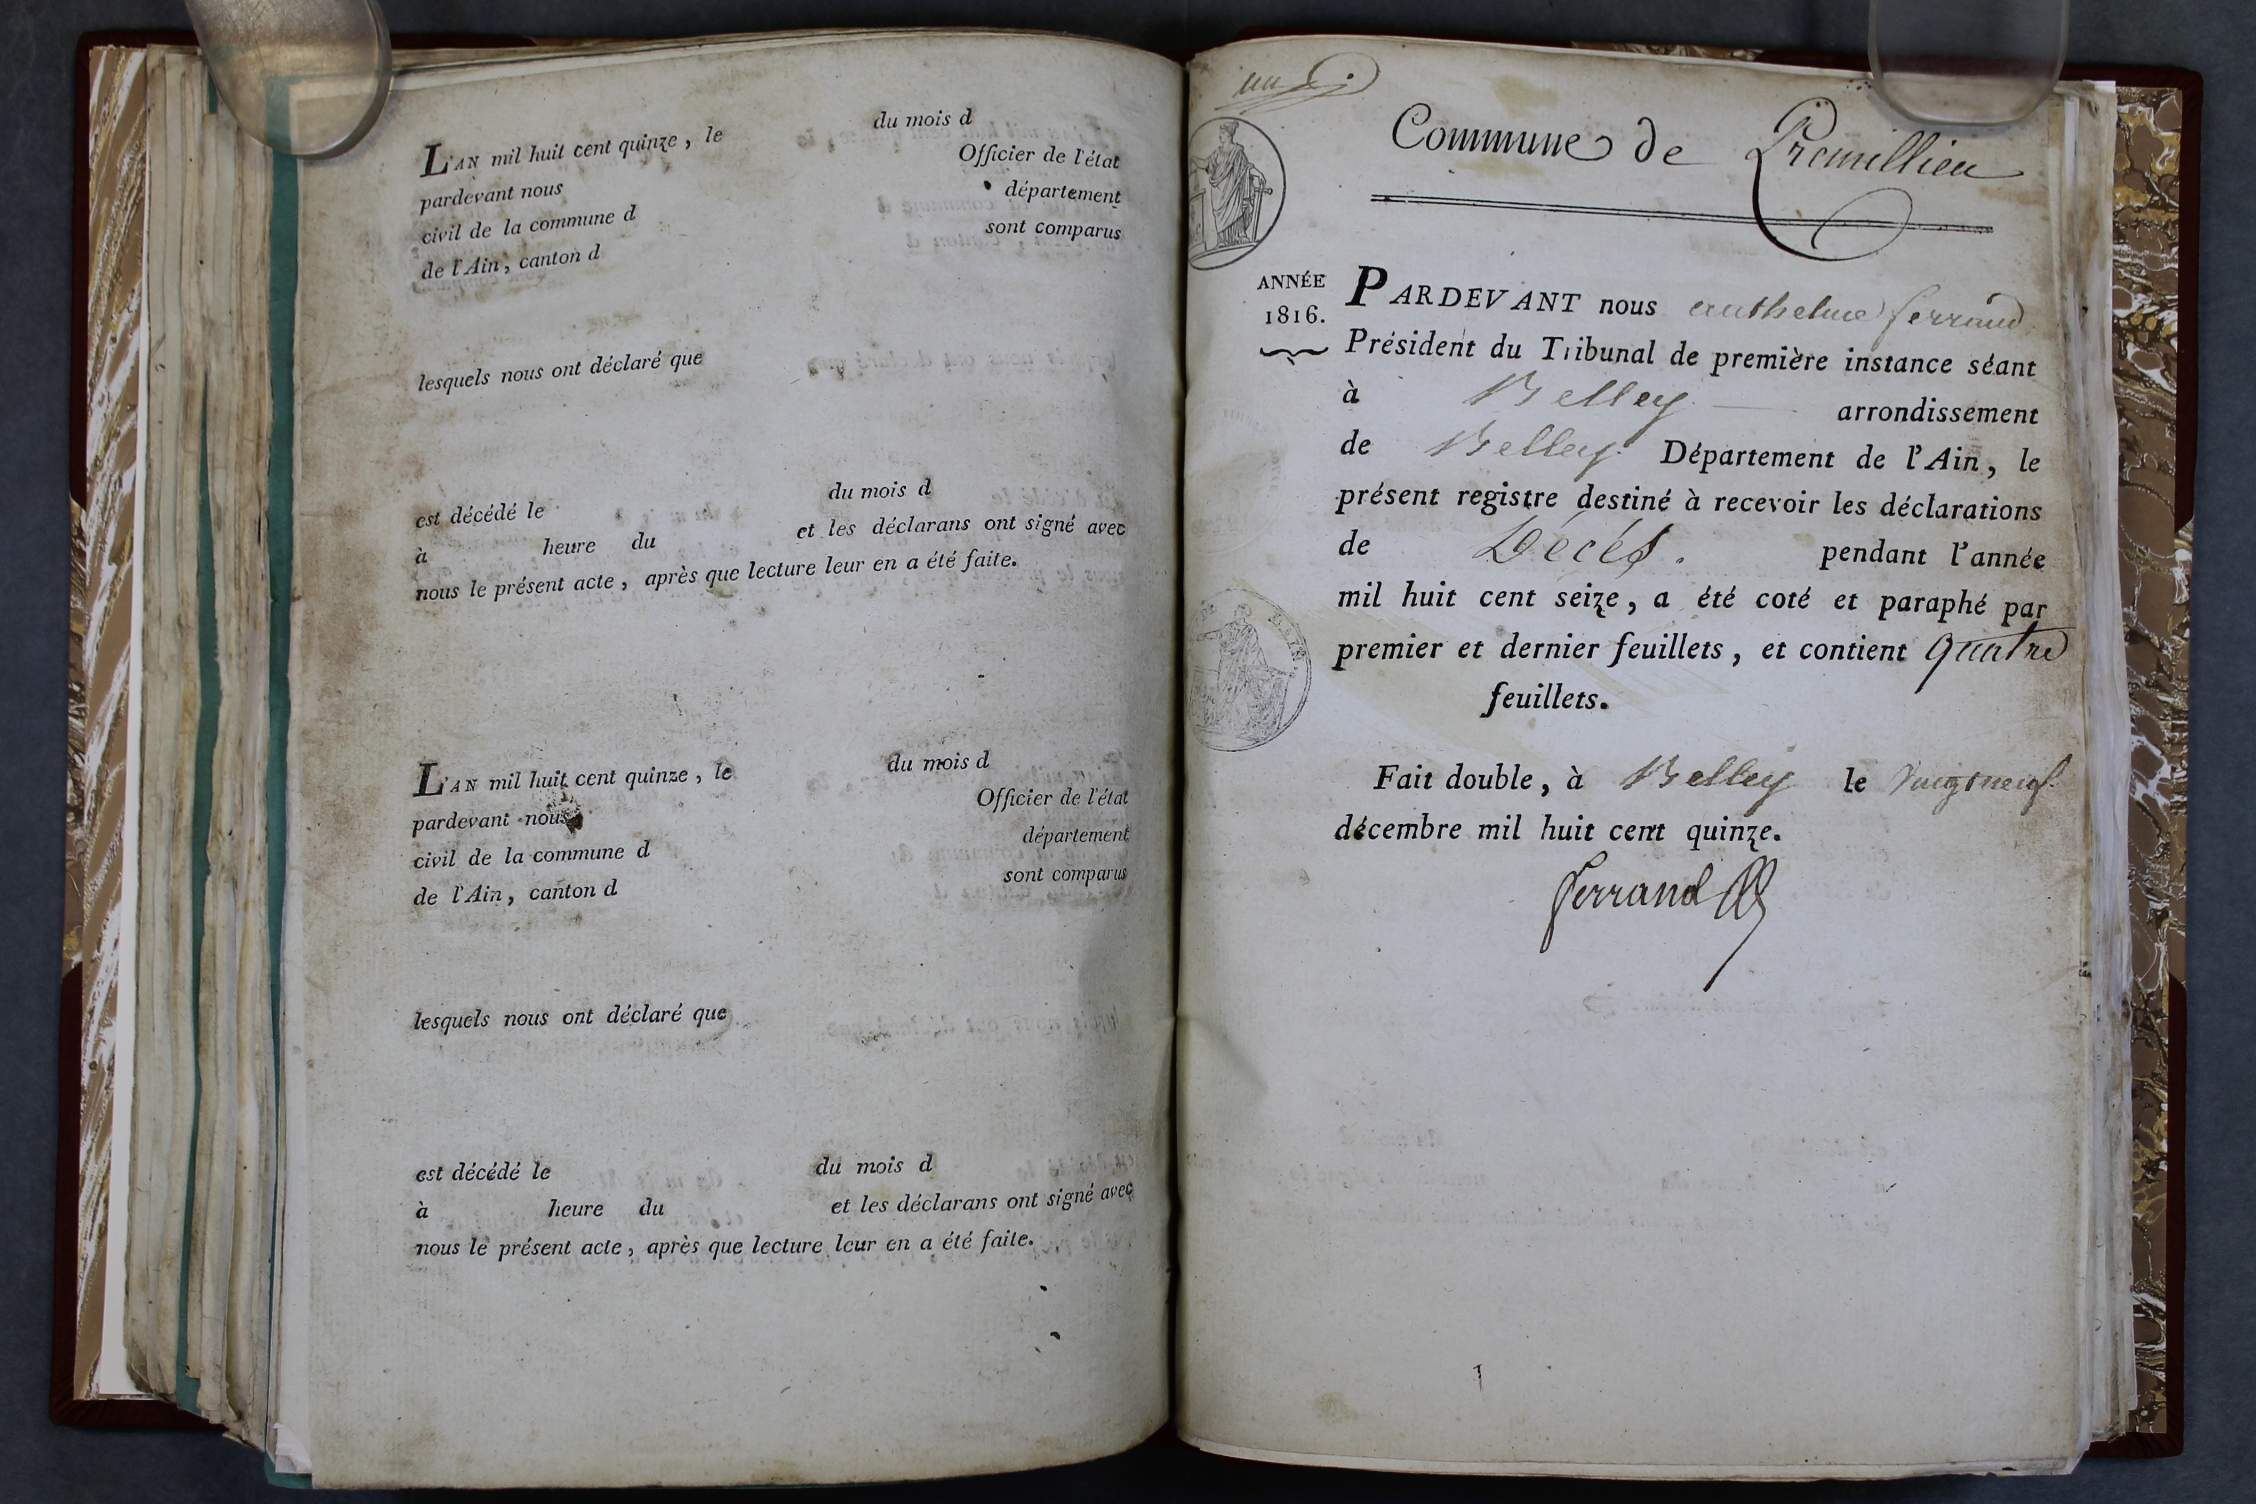 L'AN mil huit cent quinze, le du mois d
pardevant nous Officier de l'état
civil de la commune d département
de l'Ain, canton d sont comparus
lesquels nous ont déclaré que
est décédé le du mois d
à heure du et les déclarans ont signé avec
nous le présent acte, après que lecture leur en a été faite.
L'AN mil huit cent quinze, le du mois d
pardevant nous Officier de l'état
civil de la commune d département
de l'Ain, canton d sont comparus
lesquels nous ont déclaré que
est décédé le du mois d
à heure du et les déclarans ont signé avec
nous le présent acte, après que lecture leur en a été faite.
un
Commune de Premillieu
ANNÉE
1816.
PARDEVANT nous anthelme ferrand
Président du Tribunal de première instance séant
à Belley arrondissement
de Belley Département de l'Ain, le
présent registre destiné à recevoir les déclarations
de Décès. pendant l'année
mil huit cent seize, a été coté et paraphé par
premier et dernier feuillets, et contient quatre
feuillets.
Fait double, à Belley le vingt neuf
décembre mil huit cent quinze.
ferrand